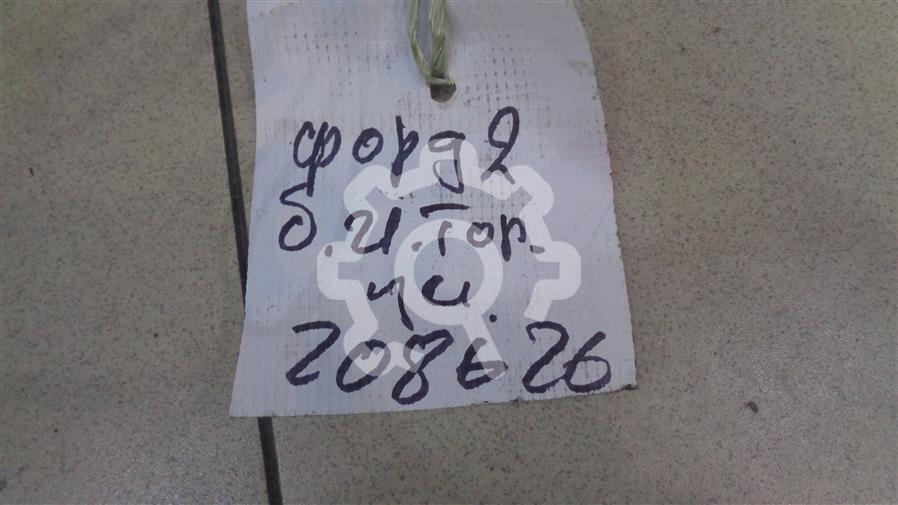 форд 2
б.и.тор.
ци.
208626